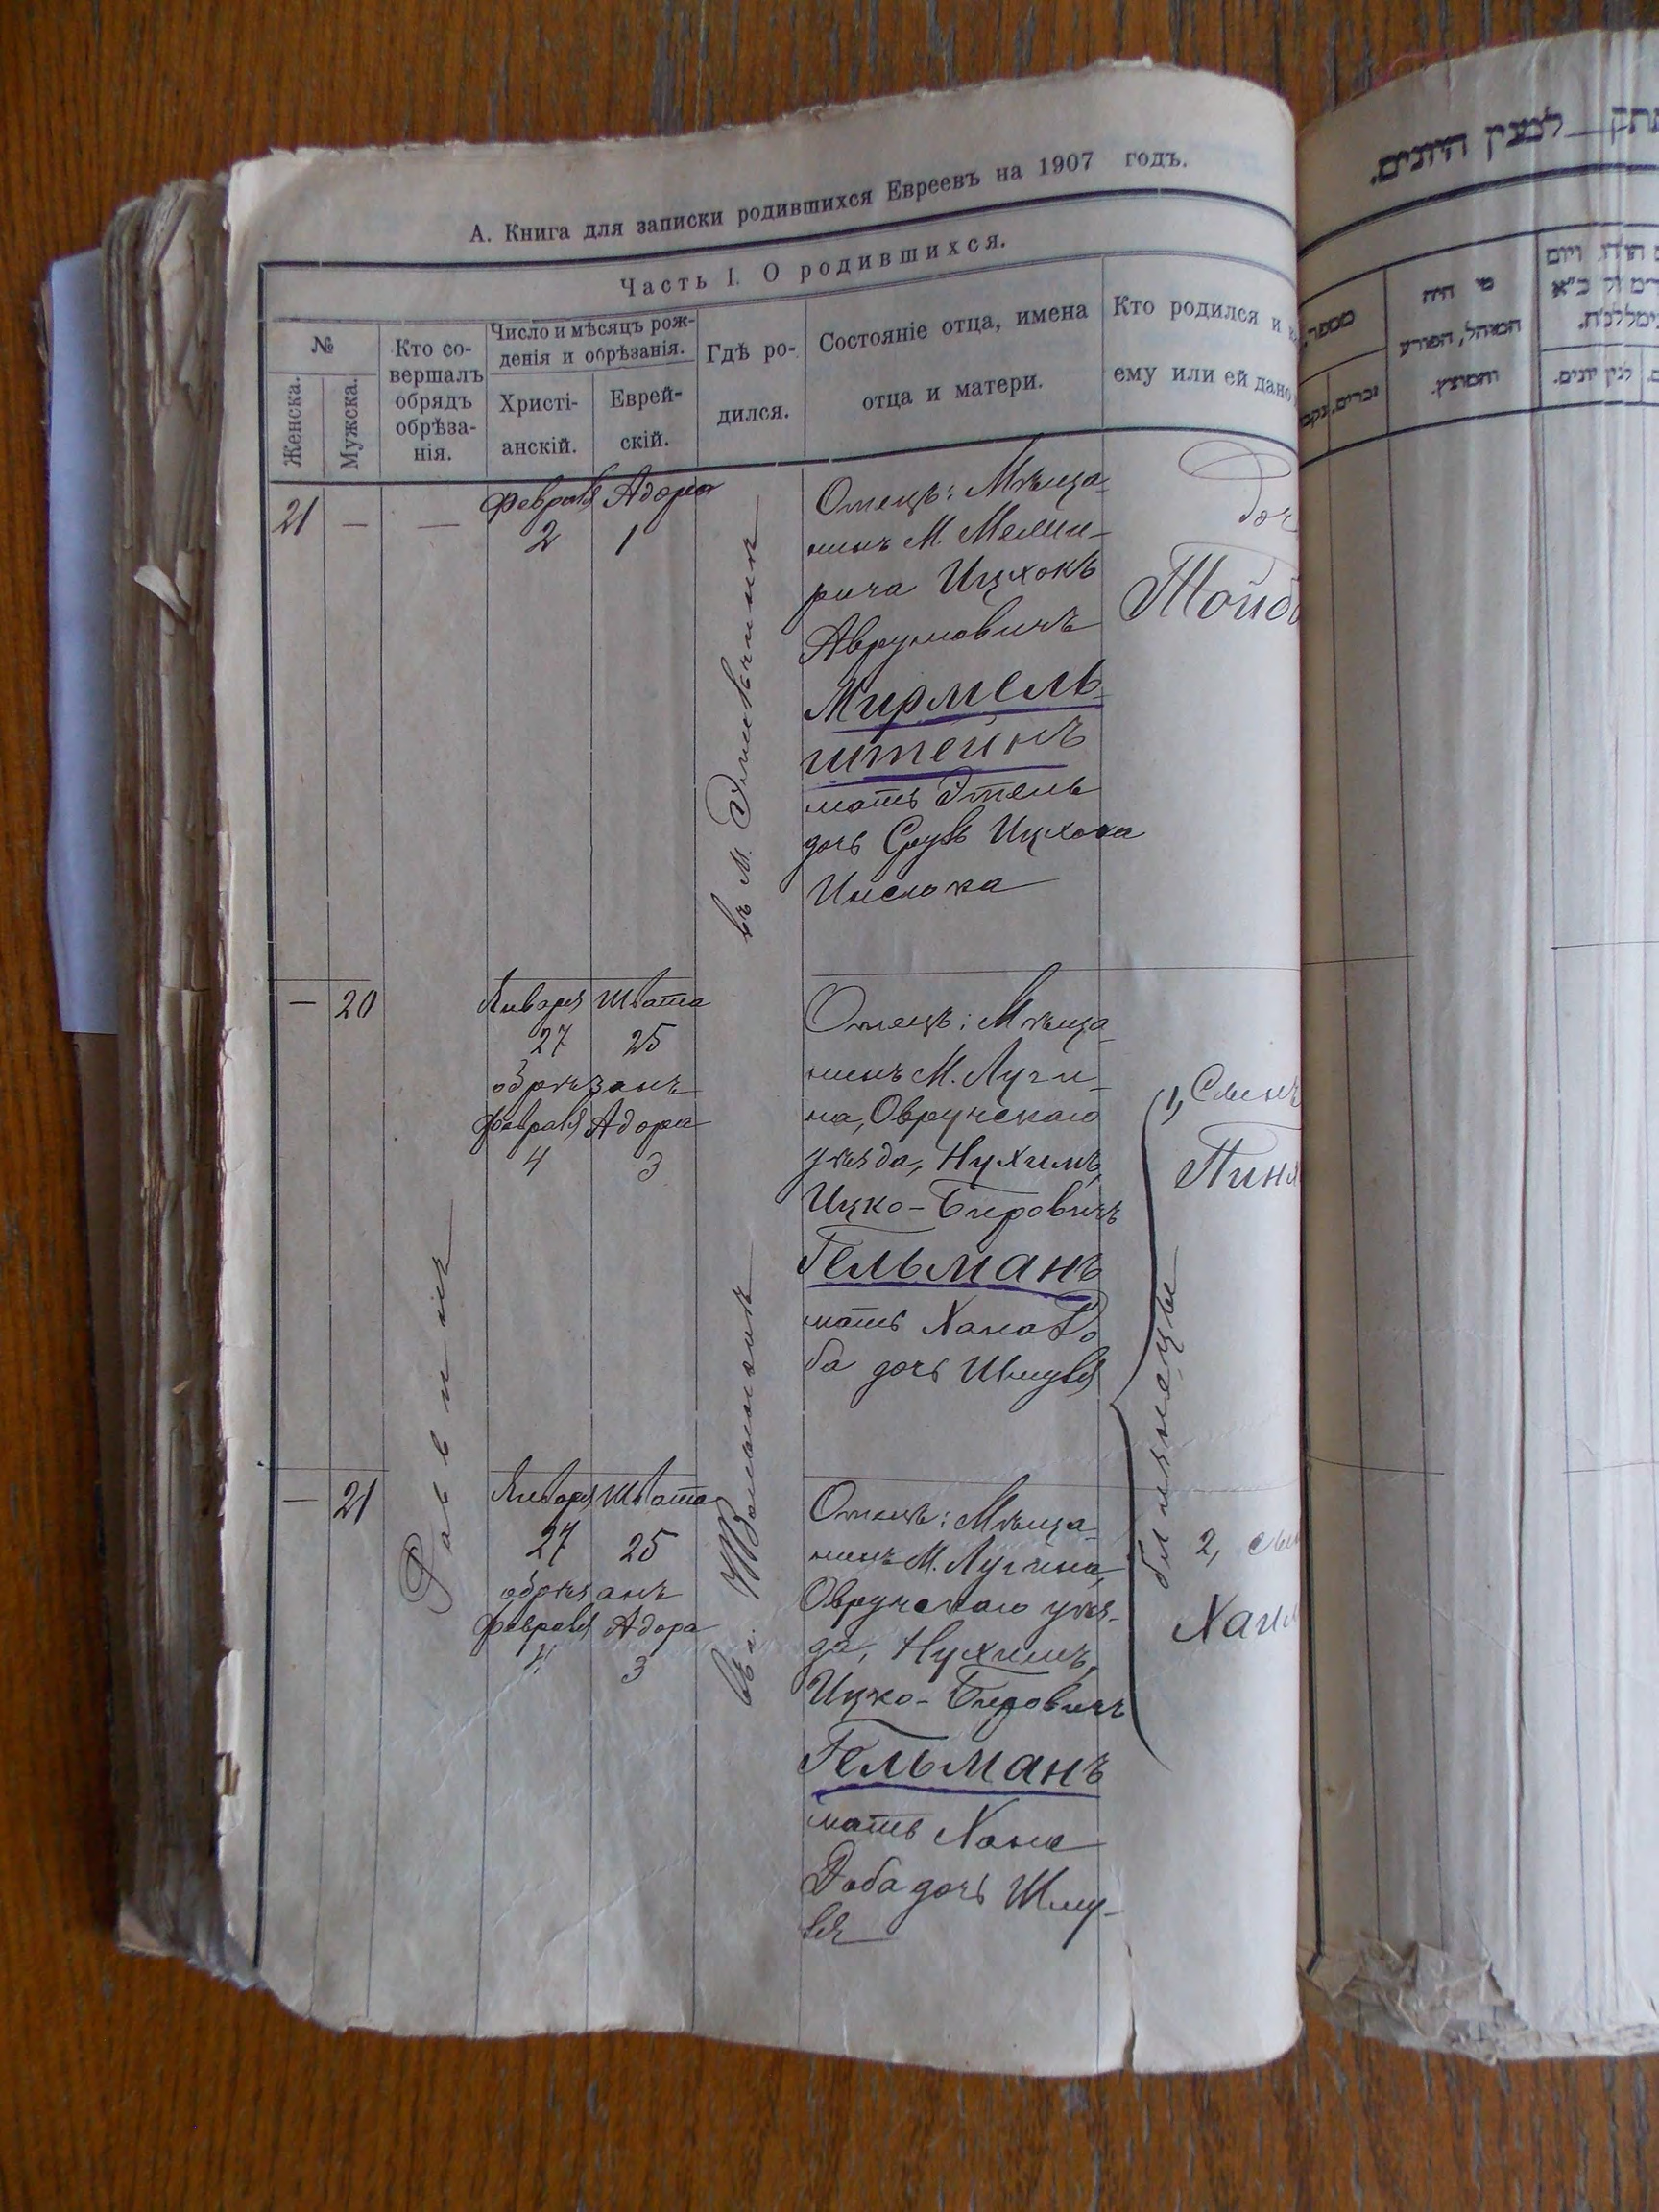 А. Книга для записки родившихся Евреевъ на 1907 годъ.
Часть I. О родившихся.
№
Женска.
Мужска.
Кто со-
вершалъ
обрядъ
обрѣза-
нія.
Число и мѣсяцъ рож-
денія и обрѣзанія.
Христі-
анскій.
Еврей-
скій.
Гдѣ ро-
дился.
Состояніе отца, имена
отца и матери.
Кто родился и
ему или ей дано
21 — —
Февраля Адора
2 1
въ М.
Отецъ: Мѣща-
нинъ М.
Ицхокъ
Аврумовичъ
Мирмель-
штейнъ
мать Этель
дочь Ицхока
Доч
Тойб
— 20
Января Швата
27 25
обрѣзанъ
Февраля Адора
4 3
Раввинъ
Отецъ: Мѣща-
нинъ М. Луги-
на, Овручскаго
уѣзда, Нухимъ
Ицко-Беровичъ
Гельманъ
мать Хана До
ба дочь Шмуля
1, Сынъ
Пин
близнецы
— 21
Января Швата
27 25
обрѣзанъ
Февраля Адора
4 3
въ г.
Отецъ: Мѣща-
нинъ М. Лугина,
Овручскаго уѣз-
да, Нухимъ,
Ицко-Беровичъ
Гельманъ
мать Хана
Доба дочь Шму-
ля
2, сын
Хаи
לנעין היונים.
מספר
זכרים.
מי היה
המוהל, הפורע
והמוצץ.
ויום